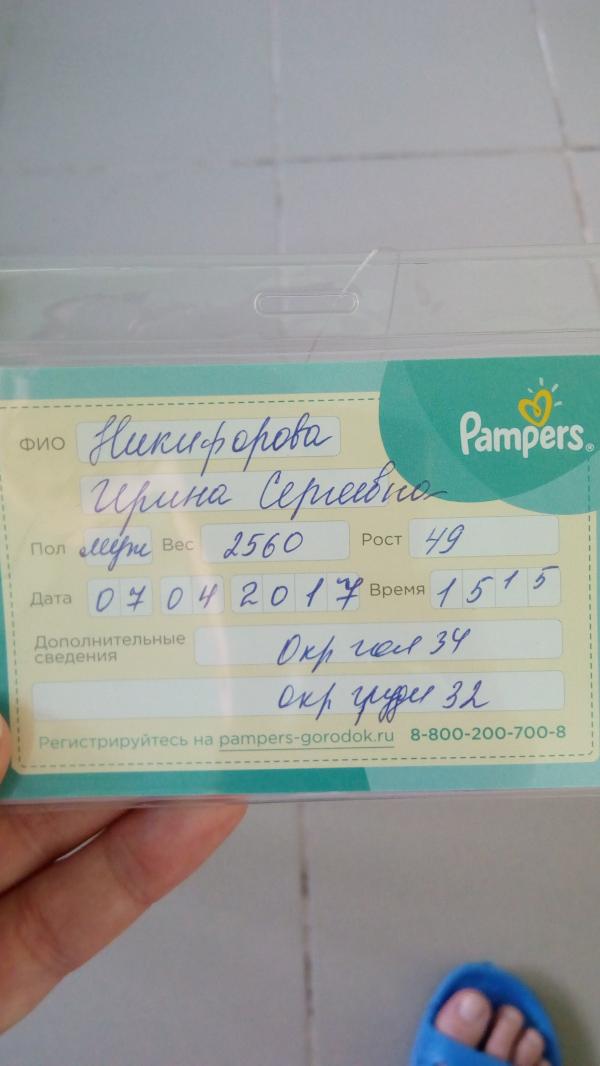 Pampers®
ФИО Никифорова
Ирина Сергеевна
Пол муж Вес 2560 Рост 49
Дата 07 04 2017 Время 1515
Дополнительные сведения Окр гол 34
окр груди 32
Регистрируйтесь на pampers-gorodok.ru 8-800-200-700-8